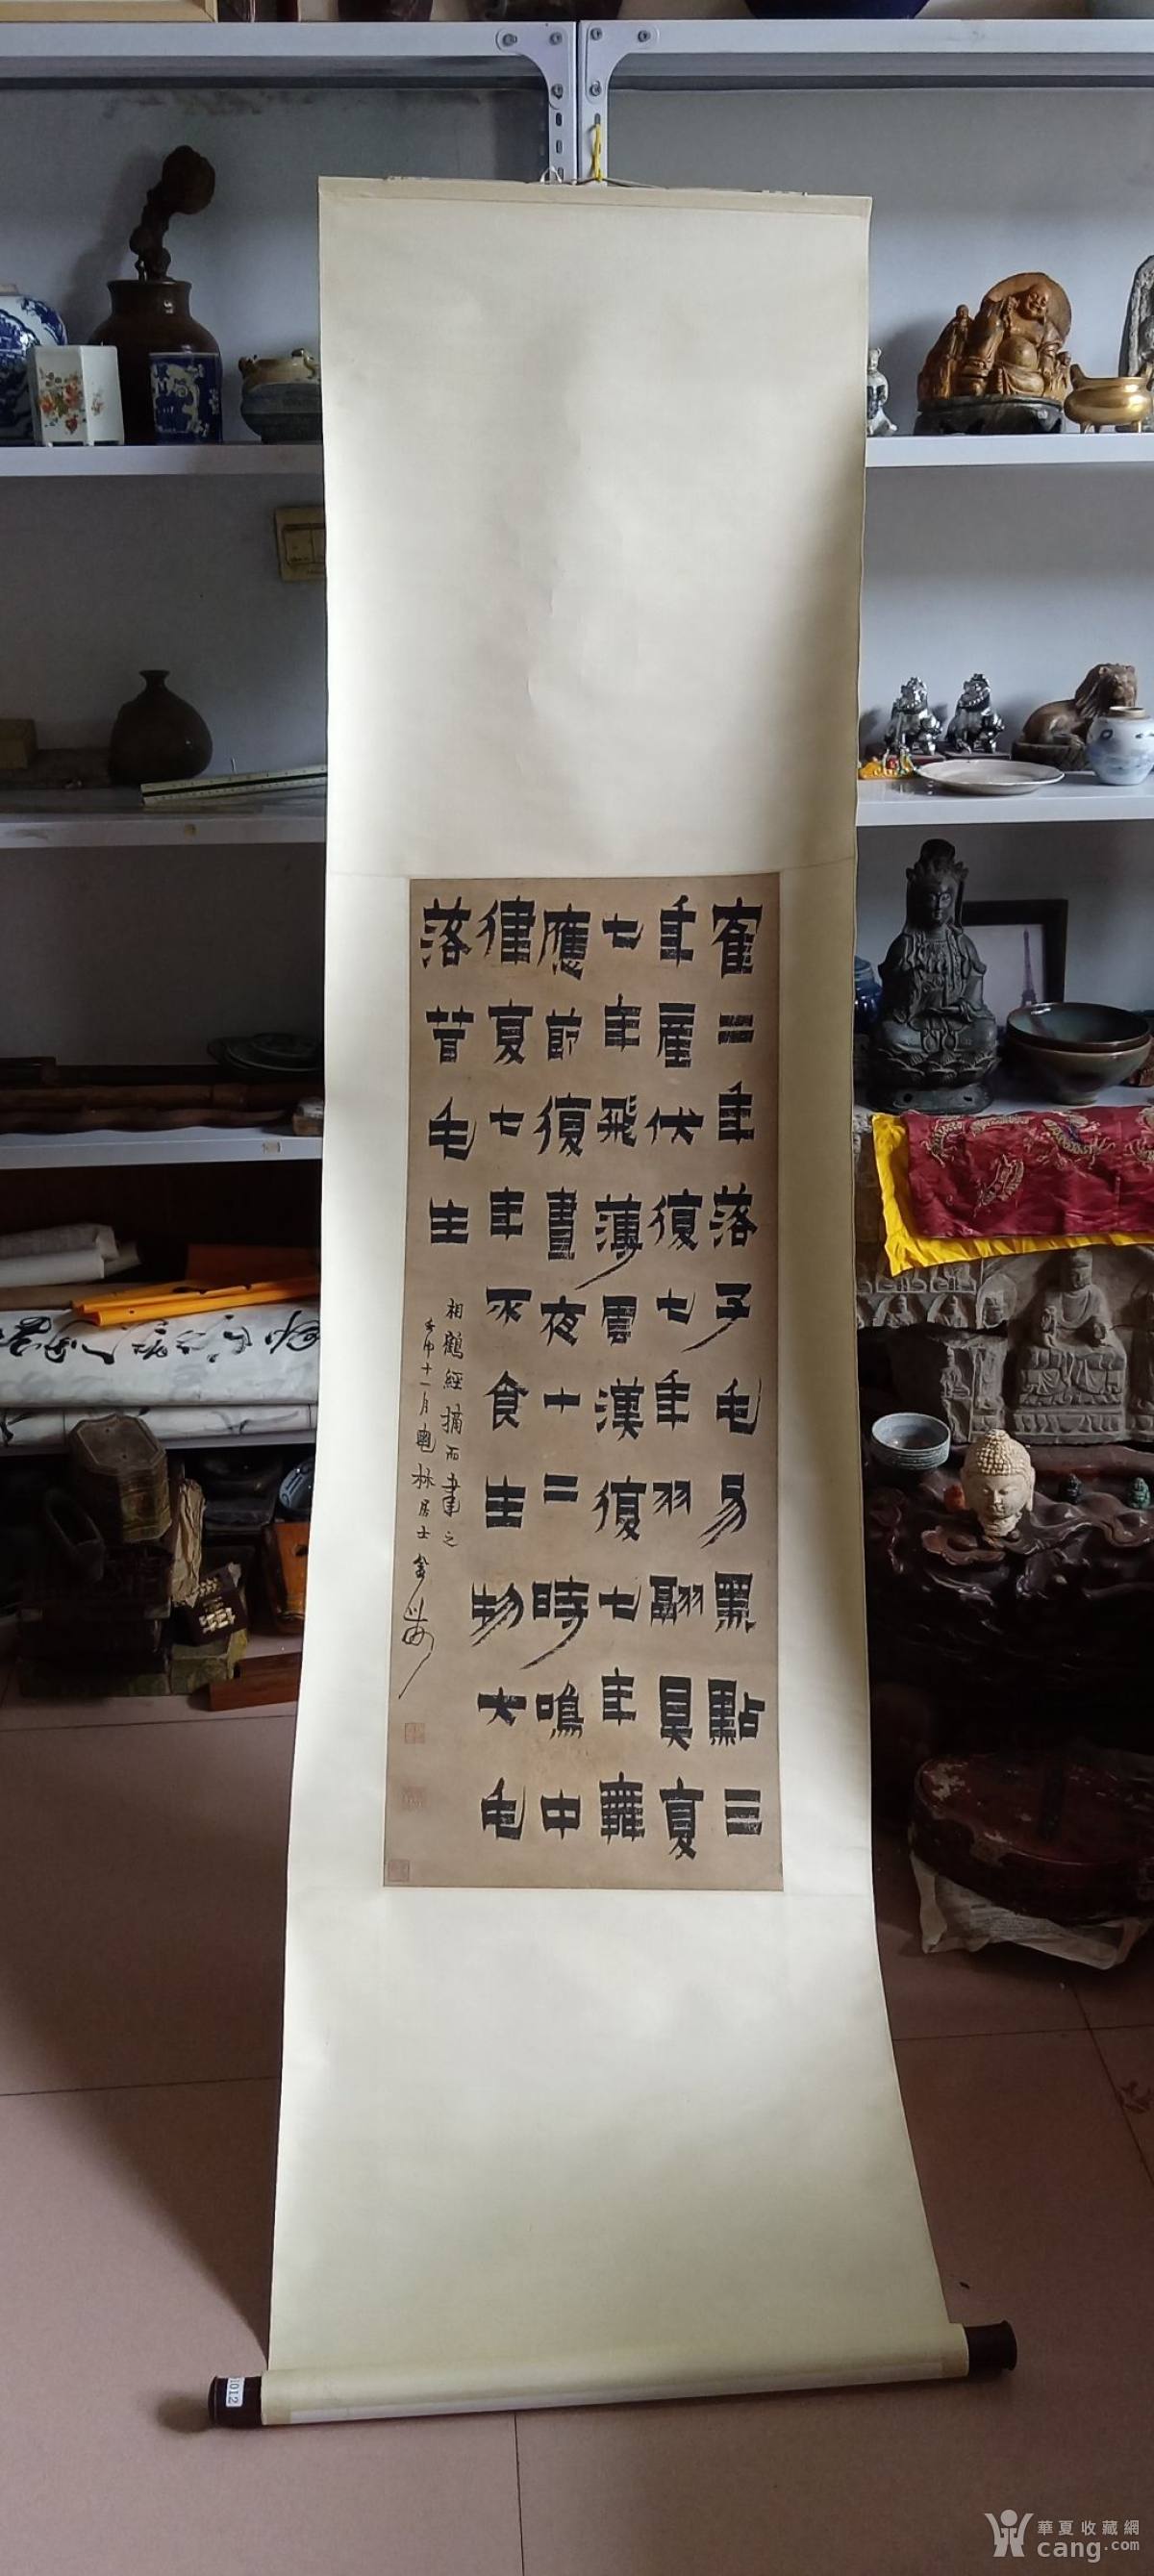 寉二年落子毛易黑點三
年產伏復七年羽翮具夏
七年飛薄雲漢復七年舞
應節復晝夜十二時鳴中
律夏七年不食生物大毛
落茸毛生
相鶴經摘而書之
十一月 林居士金
1012
華夏收藏網
cang.com